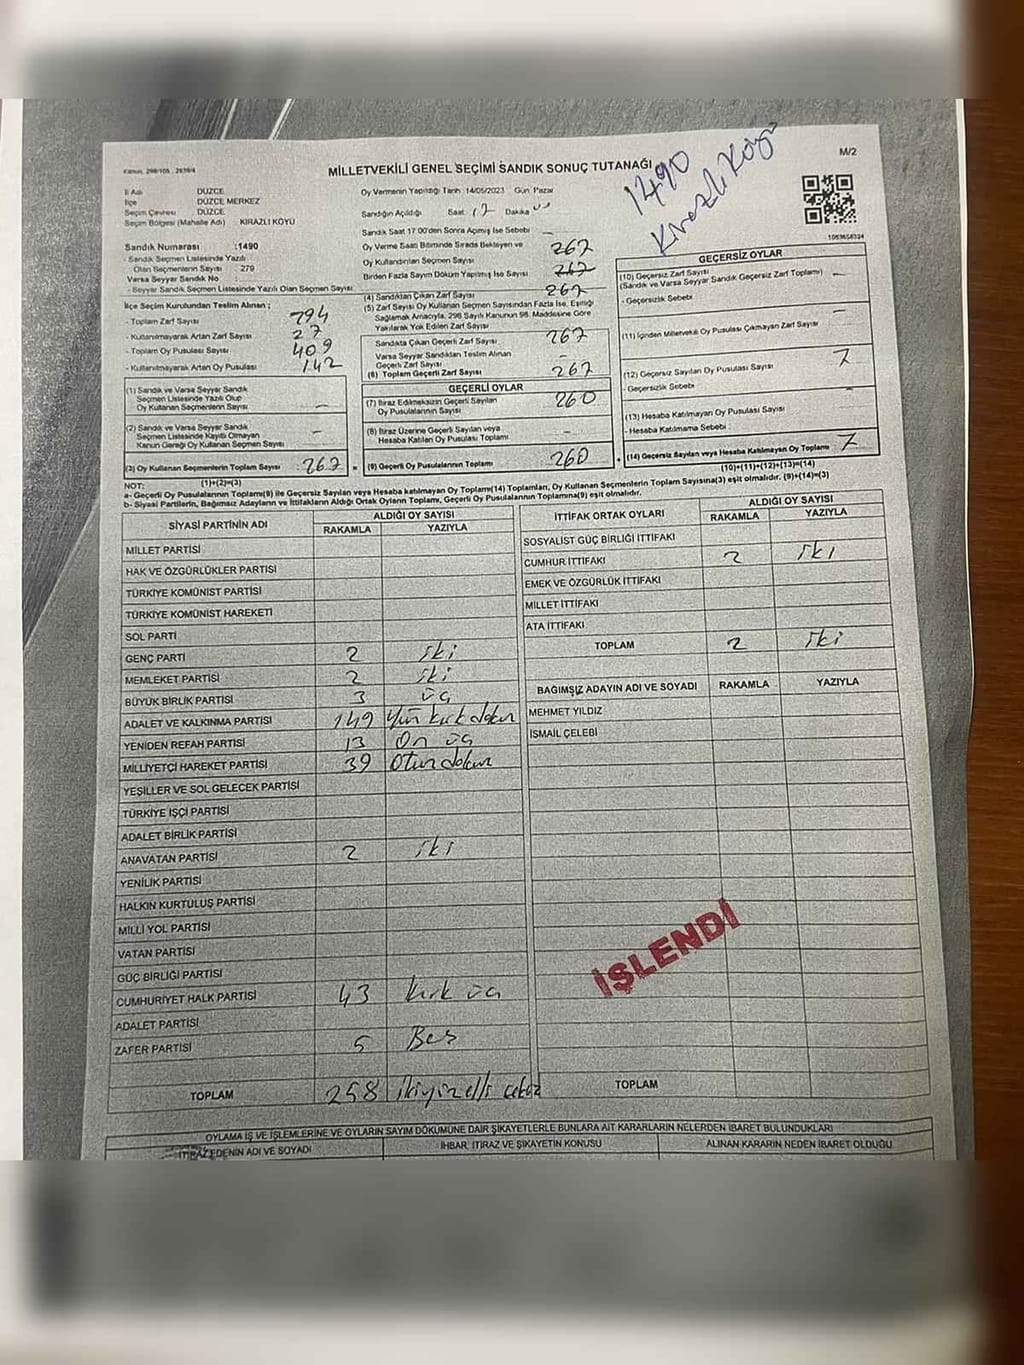 Kanun, 298/105 , 2839/4
MİLLETVEKİLİ GENEL SEÇİMİ SANDIK SONUÇ TUTANAĞI
M/2
1490
Kirazlı Köyü
İl Adı DÜZCE
İlçe DÜZCE MERKEZ
Seçim Çevresi DÜZCE
Seçim Bölgesi (Mahalle Adı) KİRAZLI KÖYÜ
Sandık Numarası :1490
- Sandık Seçmen Listesinde Yazılı
Olan Seçmenlerin Sayısı : 279
Varsa Seyyar Sandık No :
- Seyyar Sandık Seçmen Listesinde Yazılı Olan Seçmen Sayısı :
İlçe Seçim Kurulundan Teslim Alınan ;
- Toplam Zarf Sayısı 294
- Kullanılmayarak Artan Zarf Sayısı 27
- Toplam Oy Pusulası Sayısı 409
- Kullanılmayarak Artan Oy Pusulası 142
(1) Sandık ve Varsa Seyyar Sandık
Seçmen Listesinde Yazılı Olup
Oy Kullanan Seçmenlerin Sayısı –
(2) Sandık ve Varsa Seyyar Sandık
Seçmen Listesinde Kayıtlı Olmayan
Kanun Gereği Oy Kullanan Seçmen Sayısı –
(3) Oy Kullanan Seçmenlerin Toplam Sayısı : 267
(1)+(2)=(3)
Oy Vermenin Yapıldığı Tarih 14/05/2023 Gün Pazar
Sandığın Açıldığı Saat 17 Dakika
Sandık Saat 17:00'den Sonra Açılmış İse Sebebi –
Oy Verme Saati Bitiminde Sırada Bekleyen ve
Oy Kullandırılan Seçmen Sayısı 267
Birden Fazla Sayım Döküm Yapılmış İse Sayısı 267
(4) Sandıktan Çıkan Zarf Sayısı 267
(5) Zarf Sayısı Oy Kullanan Seçmen Sayısından Fazla İse, Eşitliği
Sağlamak Amacıyla, 298 Sayılı Kanunun 98. Maddesine Göre
Yakılarak Yok Edilen Zarf Sayısı
Sandıkta Çıkan Geçerli Zarf Sayısı 267
Varsa Seyyar Sandıktan Teslim Alınan
Geçerli Zarf Sayısı –
(6) Toplam Geçerli Zarf Sayısı 267
GEÇERLİ OYLAR
(7) İtiraz Edilmeksizin Geçerli Sayılan
Oy Pusulalarının Sayısı 260
(8) İtiraz Üzerine Geçerli Sayılan veya
Hesaba Katılan Oy Pusulası Toplamı –
(9) Geçerli Oy Pusulalarının Toplamı 260
1083658324
GEÇERSİZ OYLAR
(10) Geçersiz Zarf Sayısı
(Sandık ve Varsa Seyyar Sandık Geçersiz Zarf Toplamı) –
- Geçersizlik Sebebi
(11) İçinden Milletvekili Oy Pusulası Çıkmayan Zarf Sayısı –
(12) Geçersiz Sayılan Oy Pusulası Sayısı 7
- Geçersizlik Sebebi
(13) Hesaba Katılmayan Oy Pusulası Sayısı –
- Hesaba Katılmama Sebebi :
(14) Geçersiz Sayılan veya Hesaba Katılmayan Oy Toplamı 7
(10)+(11)+(12)+(13)=(14)
NOT:
a- Geçerli Oy Pusulalarının Toplamı(9) ile Geçersiz Sayılan veya Hesaba katılmayan Oy Toplamı(14) Toplamları, Oy Kullanan Seçmenlerin Toplam Sayısına(3) eşit olmalıdır. (9)+(14)=(3)
b- Siyasi Partilerin, Bağımsız Adayların ve İttifakların Aldığı Ortak Oyların Toplamı, Geçerli Oy Pusulalarının Toplamına(9) eşit olmalıdır.
SİYASİ PARTİNİN ADI ALDIĞI OY SAYISI
RAKAMLA YAZIYLA
MİLLET PARTİSİ
HAK VE ÖZGÜRLÜKLER PARTİSİ
TÜRKİYE KOMÜNİST PARTİSİ
TÜRKİYE KOMÜNİST HAREKETİ
SOL PARTİ
GENÇ PARTİ 2 iki
MEMLEKET PARTİSİ 2 iki
BÜYÜK BİRLİK PARTİSİ 3 üç
ADALET VE KALKINMA PARTİSİ 149 Yüz kırk dokuz
YENİDEN REFAH PARTİSİ 13 On üç
MİLLİYETÇİ HAREKET PARTİSİ 39 Otuz dokuz
YEŞİLLER VE SOL GELECEK PARTİSİ
TÜRKİYE İŞÇİ PARTİSİ
ADALET BİRLİK PARTİSİ
ANAVATAN PARTİSİ 2 iki
YENİLİK PARTİSİ
HALKIN KURTULUŞ PARTİSİ
MİLLİ YOL PARTİSİ
VATAN PARTİSİ
GÜÇ BİRLİĞİ PARTİSİ
CUMHURİYET HALK PARTİSİ 43 kırk üç
ADALET PARTİSİ
ZAFER PARTİSİ 5 Beş
TOPLAM 258 ikiyüzelli sekiz
İTTİFAK ORTAK OYLARI ALDIĞI OY SAYISI
RAKAMLA YAZIYLA
SOSYALİST GÜÇ BİRLİĞİ İTTİFAKI
CUMHUR İTTİFAKI 2 iki
EMEK VE ÖZGÜRLÜK İTTİFAKI
MİLLET İTTİFAKI
ATA İTTİFAKI
TOPLAM 2 iki
BAĞIMSIZ ADAYIN ADI VE SOYADI RAKAMLA YAZIYLA
MEHMET YILDIZ
İSMAİL ÇELEBİ
İŞLENDİ
TOPLAM
OYLAMA İŞ VE İŞLEMLERİNE VE OYLARIN SAYIM DÖKÜMÜNE DAİR ŞİKAYETLERLE BUNLARA AİT KARARLARIN NELERDEN İBARET BULUNDUKLARI
İTİRAZ EDENİN ADI VE SOYADI İHBAR, İTİRAZ VE ŞİKAYETİN KONUSU ALINAN KARARIN NEDEN İBARET OLDUĞU